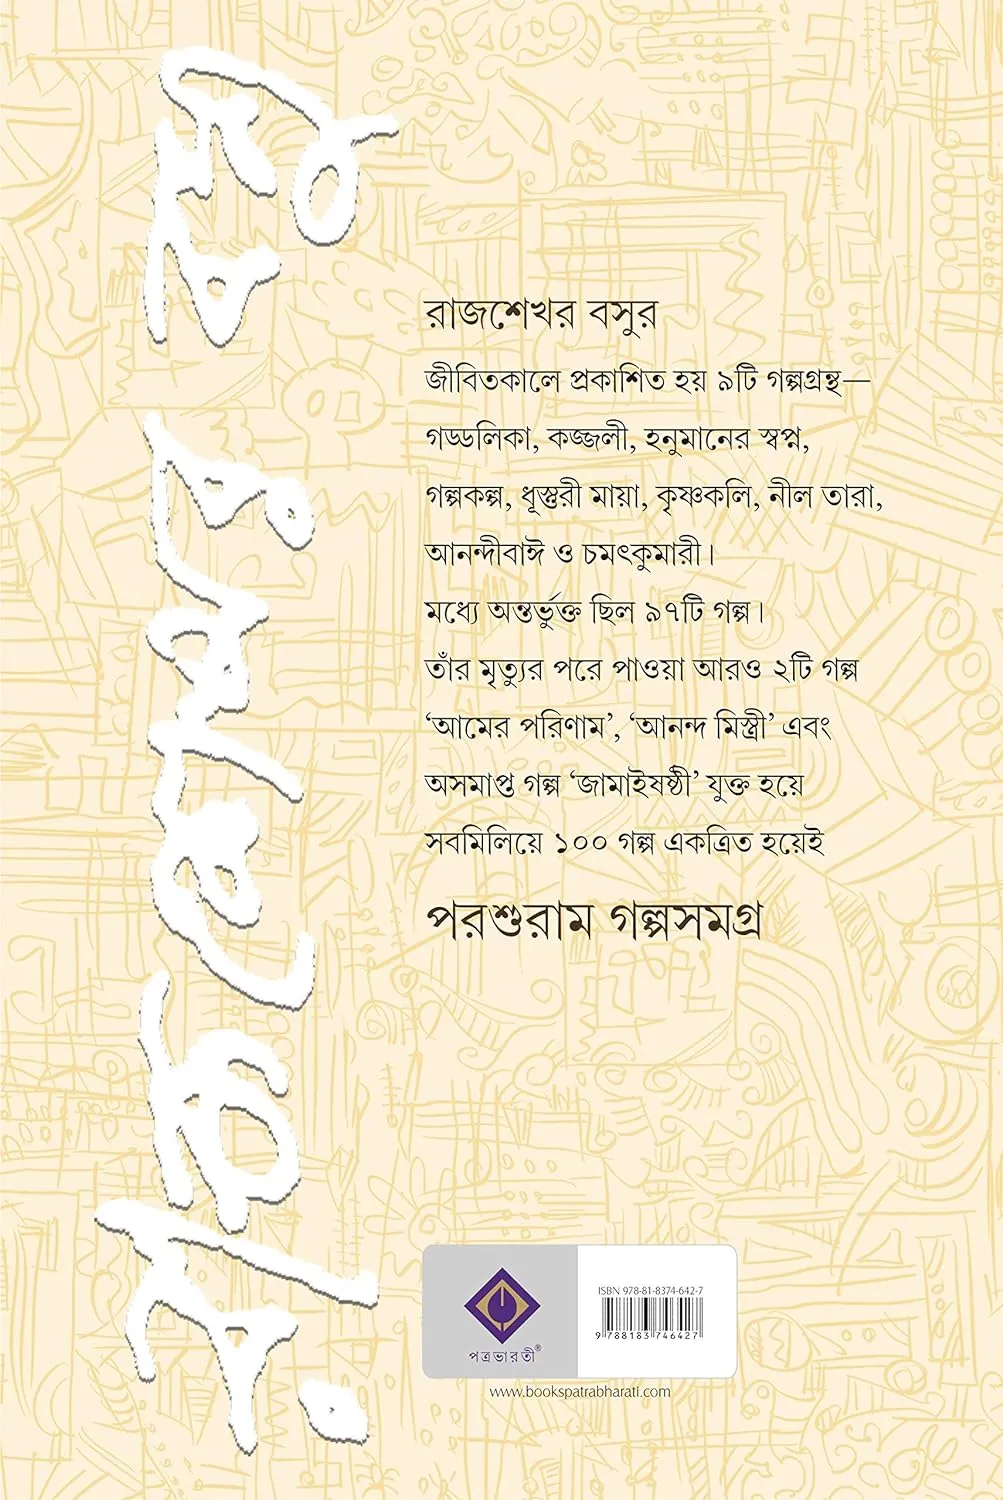 রাজশেখর বসু
রাজশেখর বসুর
জীবিতকালে প্রকাশিত হয় ৯টি গল্পগ্রন্থ—
গড্ডলিকা, কজ্জলী, হনুমানের স্বপ্ন,
গল্পকল্প, ধূস্তুরী মায়া, কৃষ্ণকলি, নীল তারা,
আনন্দীবাঈ ও চমৎকুমারী।
মধ্যে অন্তর্ভুক্ত ছিল ৯৭টি গল্প।
তাঁর মৃত্যুর পরে পাওয়া আরও ২টি গল্প
‘আমের পরিণাম’, ‘আনন্দ মিস্ত্রী’ এবং
অসমাপ্ত গল্প ‘জামাইষষ্ঠী’ যুক্ত হয়ে
সবমিলিয়ে ১০০ গল্প একত্রিত হয়েই
পরশুরাম গল্পসমগ্র
ISBN 978-81-8374-642-7
9 788183 746427
পত্রভারতী®
www.bookspatrabharati.com